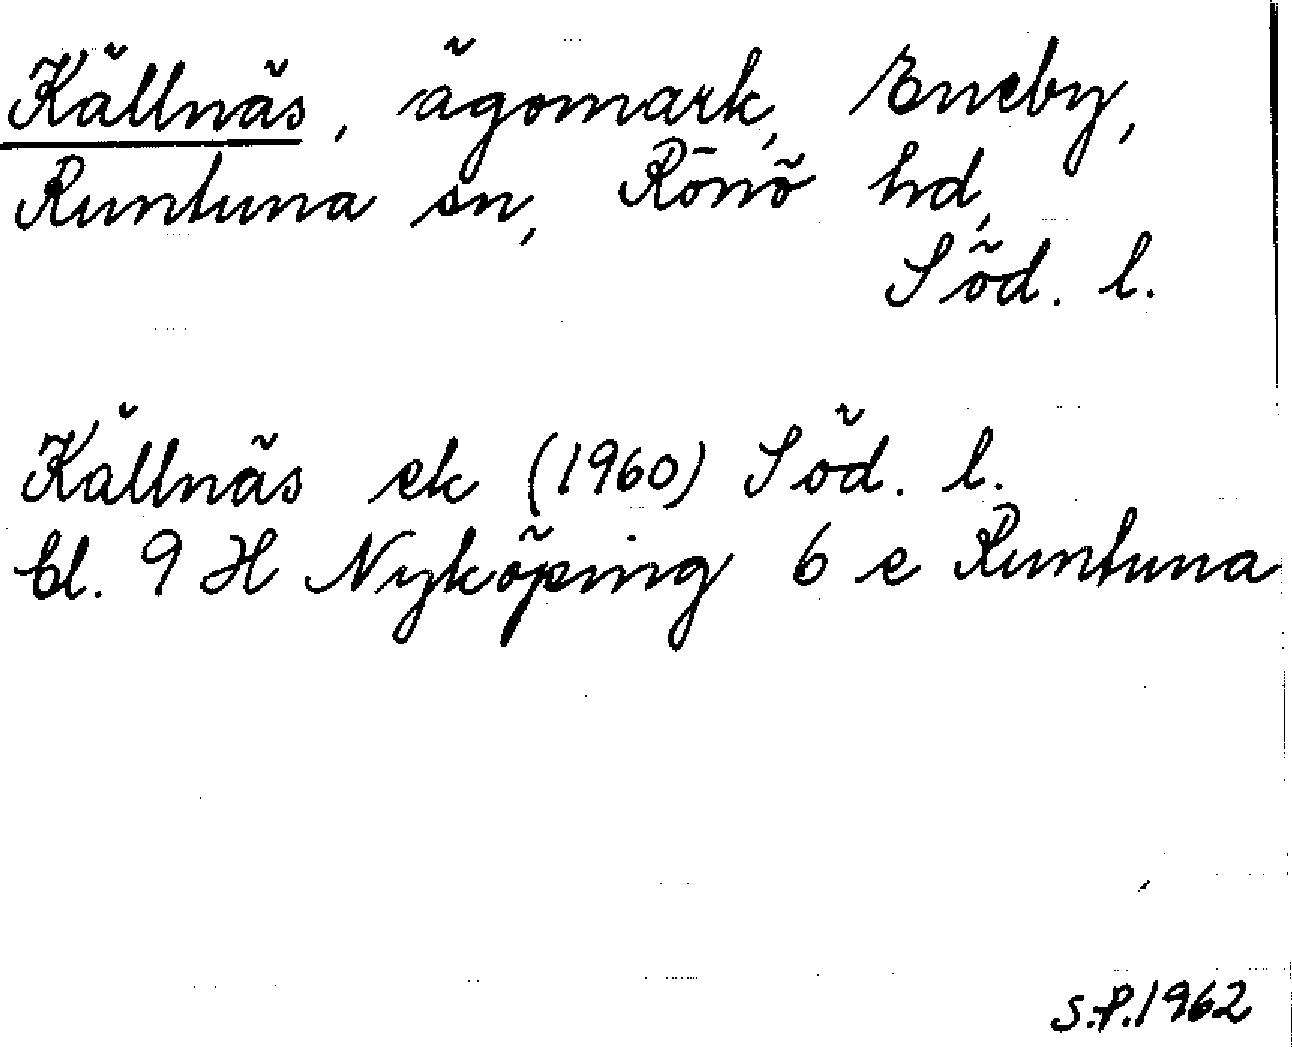 Källnäs, ägomark, Eneby,
Runtuna sn, Rönö hd,
Söd. l.
Källnäs ek (1960) Söd. l.
bl. 9 H Nyköping 6 e Runtuna
S.P. 1962